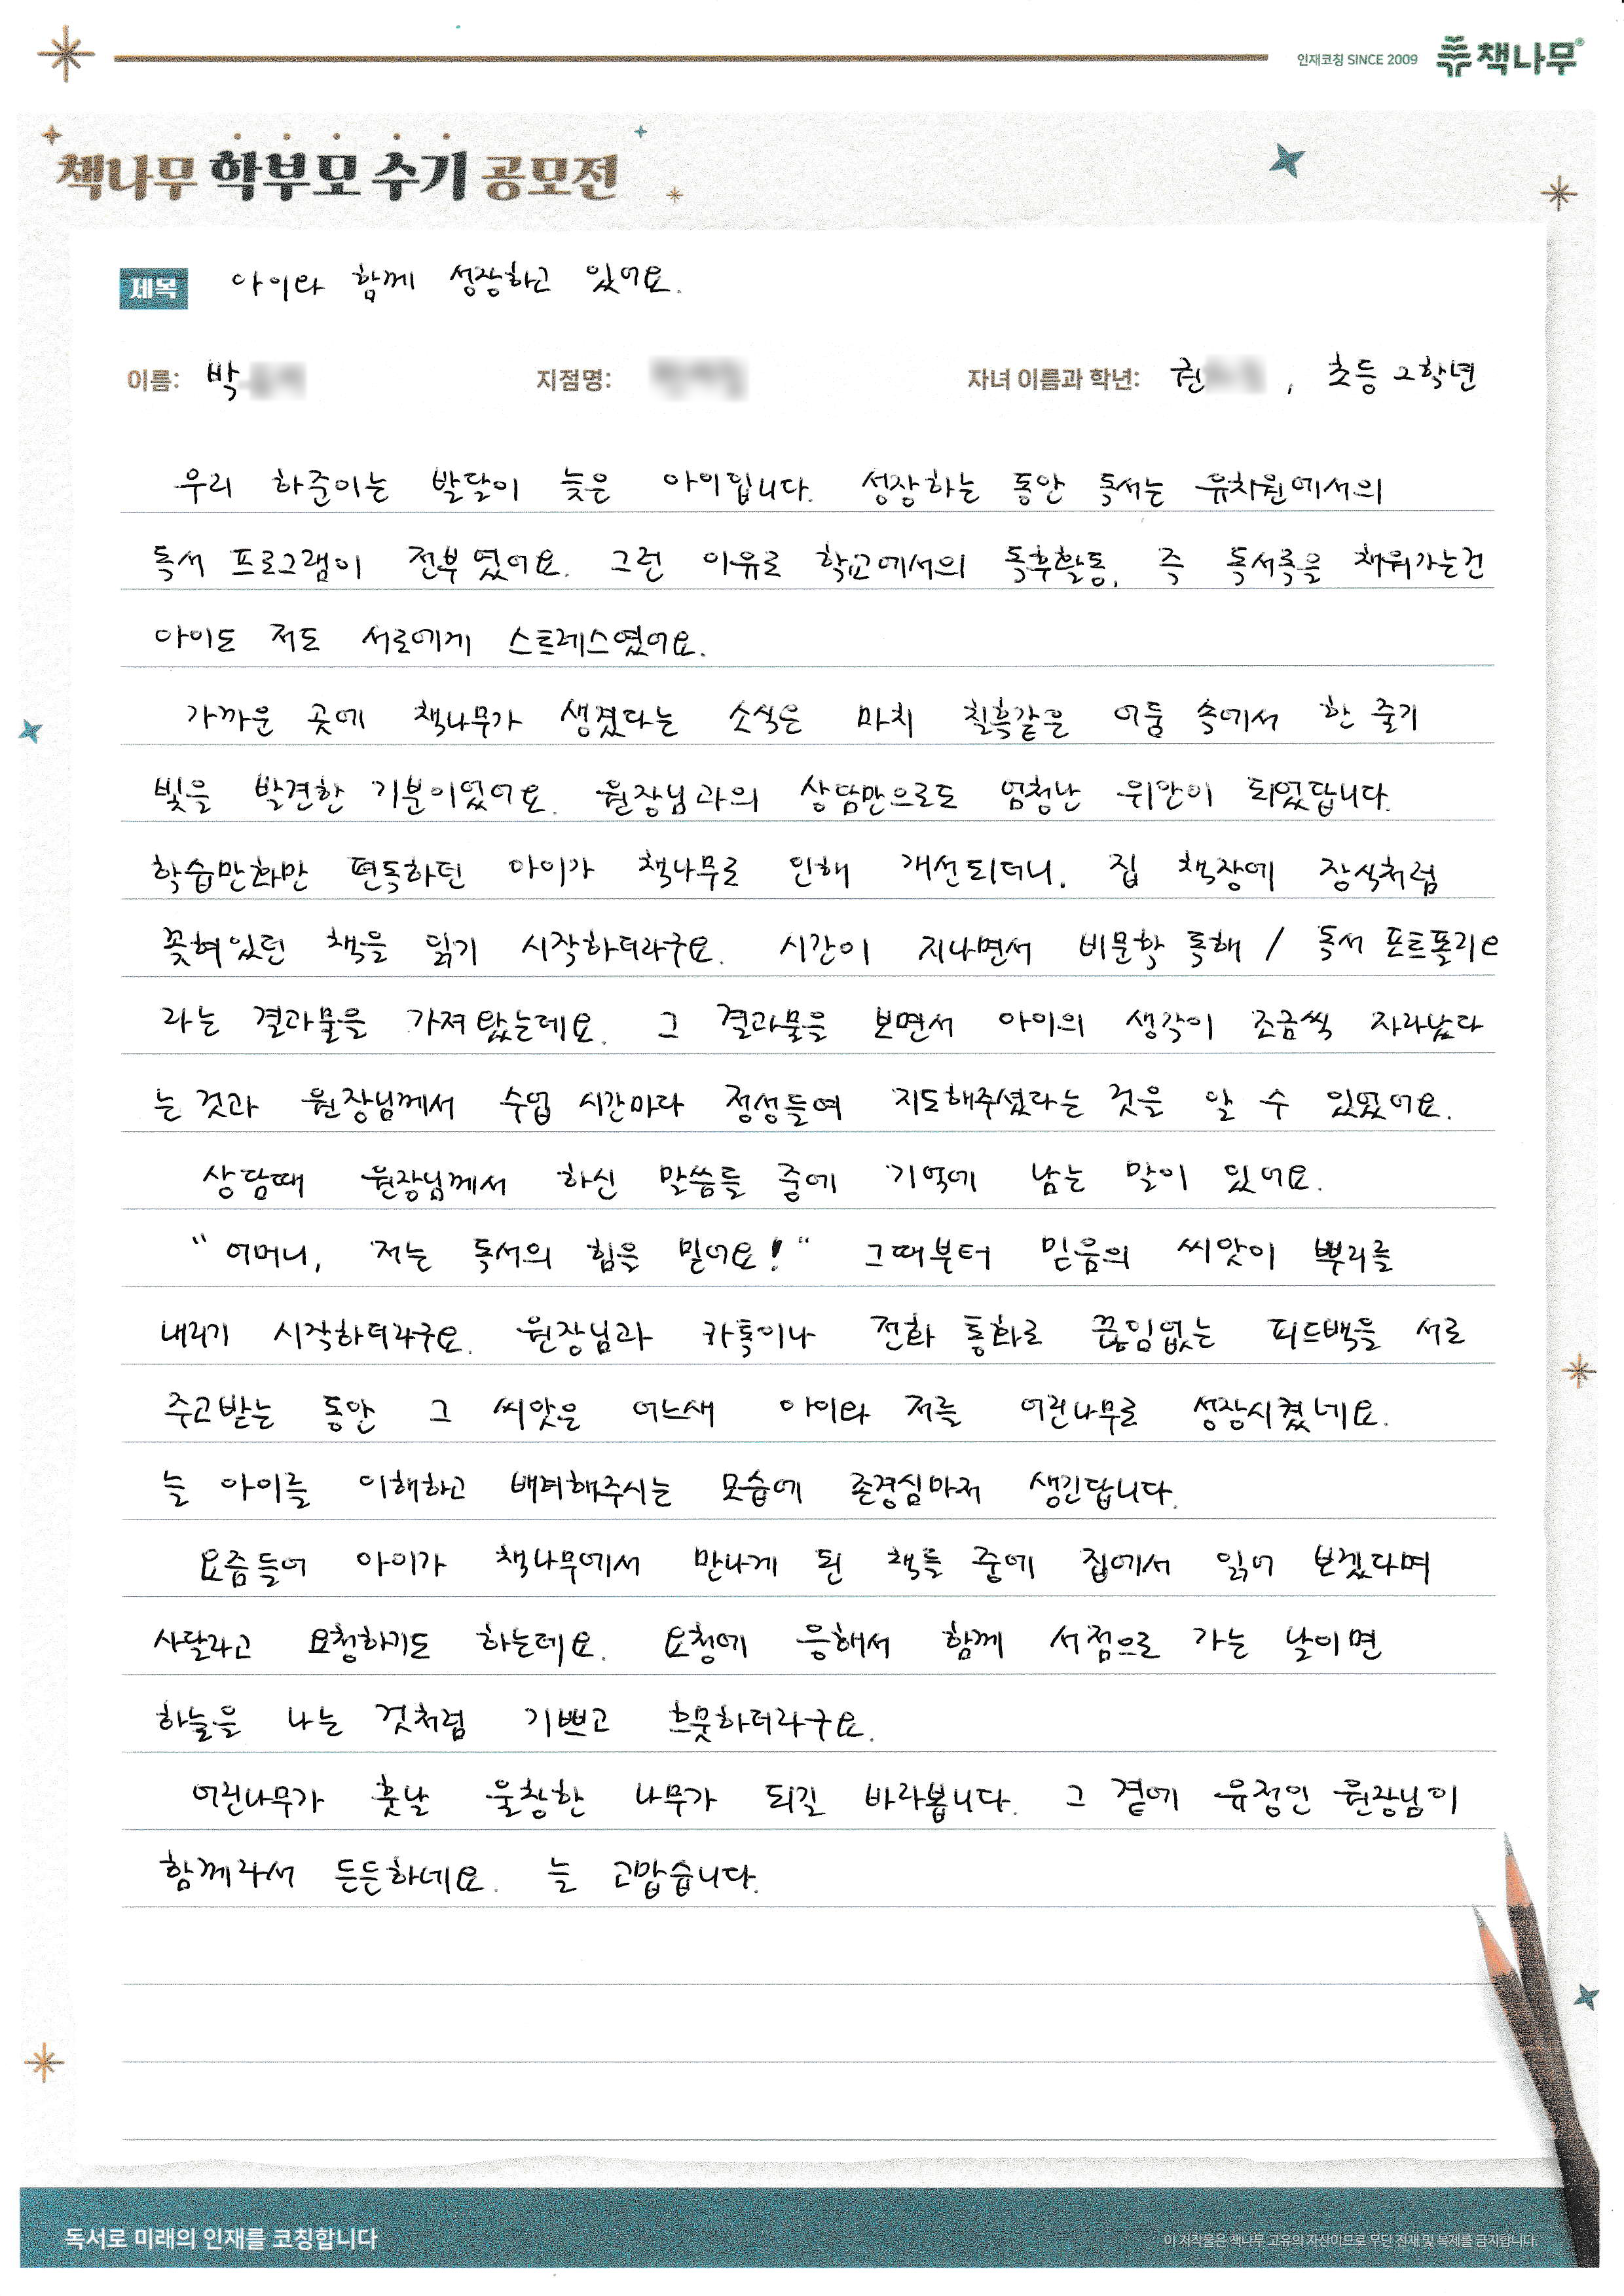 인재코칭 SINCE 2009 책나무
책나무 학부모 수기 공모전
제목 아이와 함께 성장하고 있어요.
이름: 박 지점명: 자녀 이름과 학년: 권 , 초등 2학년
우리 하준이는 발달이 늦은 아이입니다. 성장하는 동안 독서는 유치원에서의
독서 프로그램이 전부였어요. 그런 이유로 학교에서의 독후활동, 즉 독서록을 채워가는건
아이도 저도 서로에게 스트레스였어요.
가까운 곳에 책나무가 생겼다는 소식은 마치 칠흑같은 어둠 속에서 한 줄기
빛을 발견한 기분이었어요. 원장님과의 상담만으로도 엄청난 위안이 되었답니다.
학습만화만 편독하던 아이가 책나무로 인해 개선되더니, 집 책장에 장식처럼
꽂혀있던 책을 읽기 시작하더라구요. 시간이 지나면서 비문학 독해 / 독서 포트폴리오
라는 결과물을 가져왔는데요. 그 결과물을 보면서 아이의 생각이 조금씩 자라났다
는 것과 원장님께서 수업 시간마다 정성들여 지도해주셨다는 것을 알 수 있었어요.
상담때 원장님께서 하신 말씀들 중에 기억에 남는 말이 있어요.
“어머니, 저는 독서의 힘을 믿어요!“ 그때부터 믿음의 씨앗이 뿌리를
내리기 시작하더라구요. 원장님과 카톡이나 전화 통화로 끊임없는 피드백을 서로
주고받는 동안 그 씨앗은 어느새 아이와 저를 어린나무로 성장시켰네요.
늘 아이를 이해하고 배려해주시는 모습에 존경심마저 생긴답니다.
요즘들어 아이가 책나무에서 만나게 된 책들 중에 집에서 읽어 보겠다며
사달라고 요청하기도 하는데요. 요청에 응해서 함께 서점으로 가는 날이면
하늘을 나는 것처럼 기쁘고 흐뭇하더라구요.
어린나무가 훗날 울창한 나무가 되길 바라봅니다. 그 곁에 유정인 원장님이
함께라서 든든하네요. 늘 고맙습니다.
독서로 미래의 인재를 코칭합니다
이 저작물은 책나무 고유의 자산이므로 무단 전재 및 복제를 금지합니다.